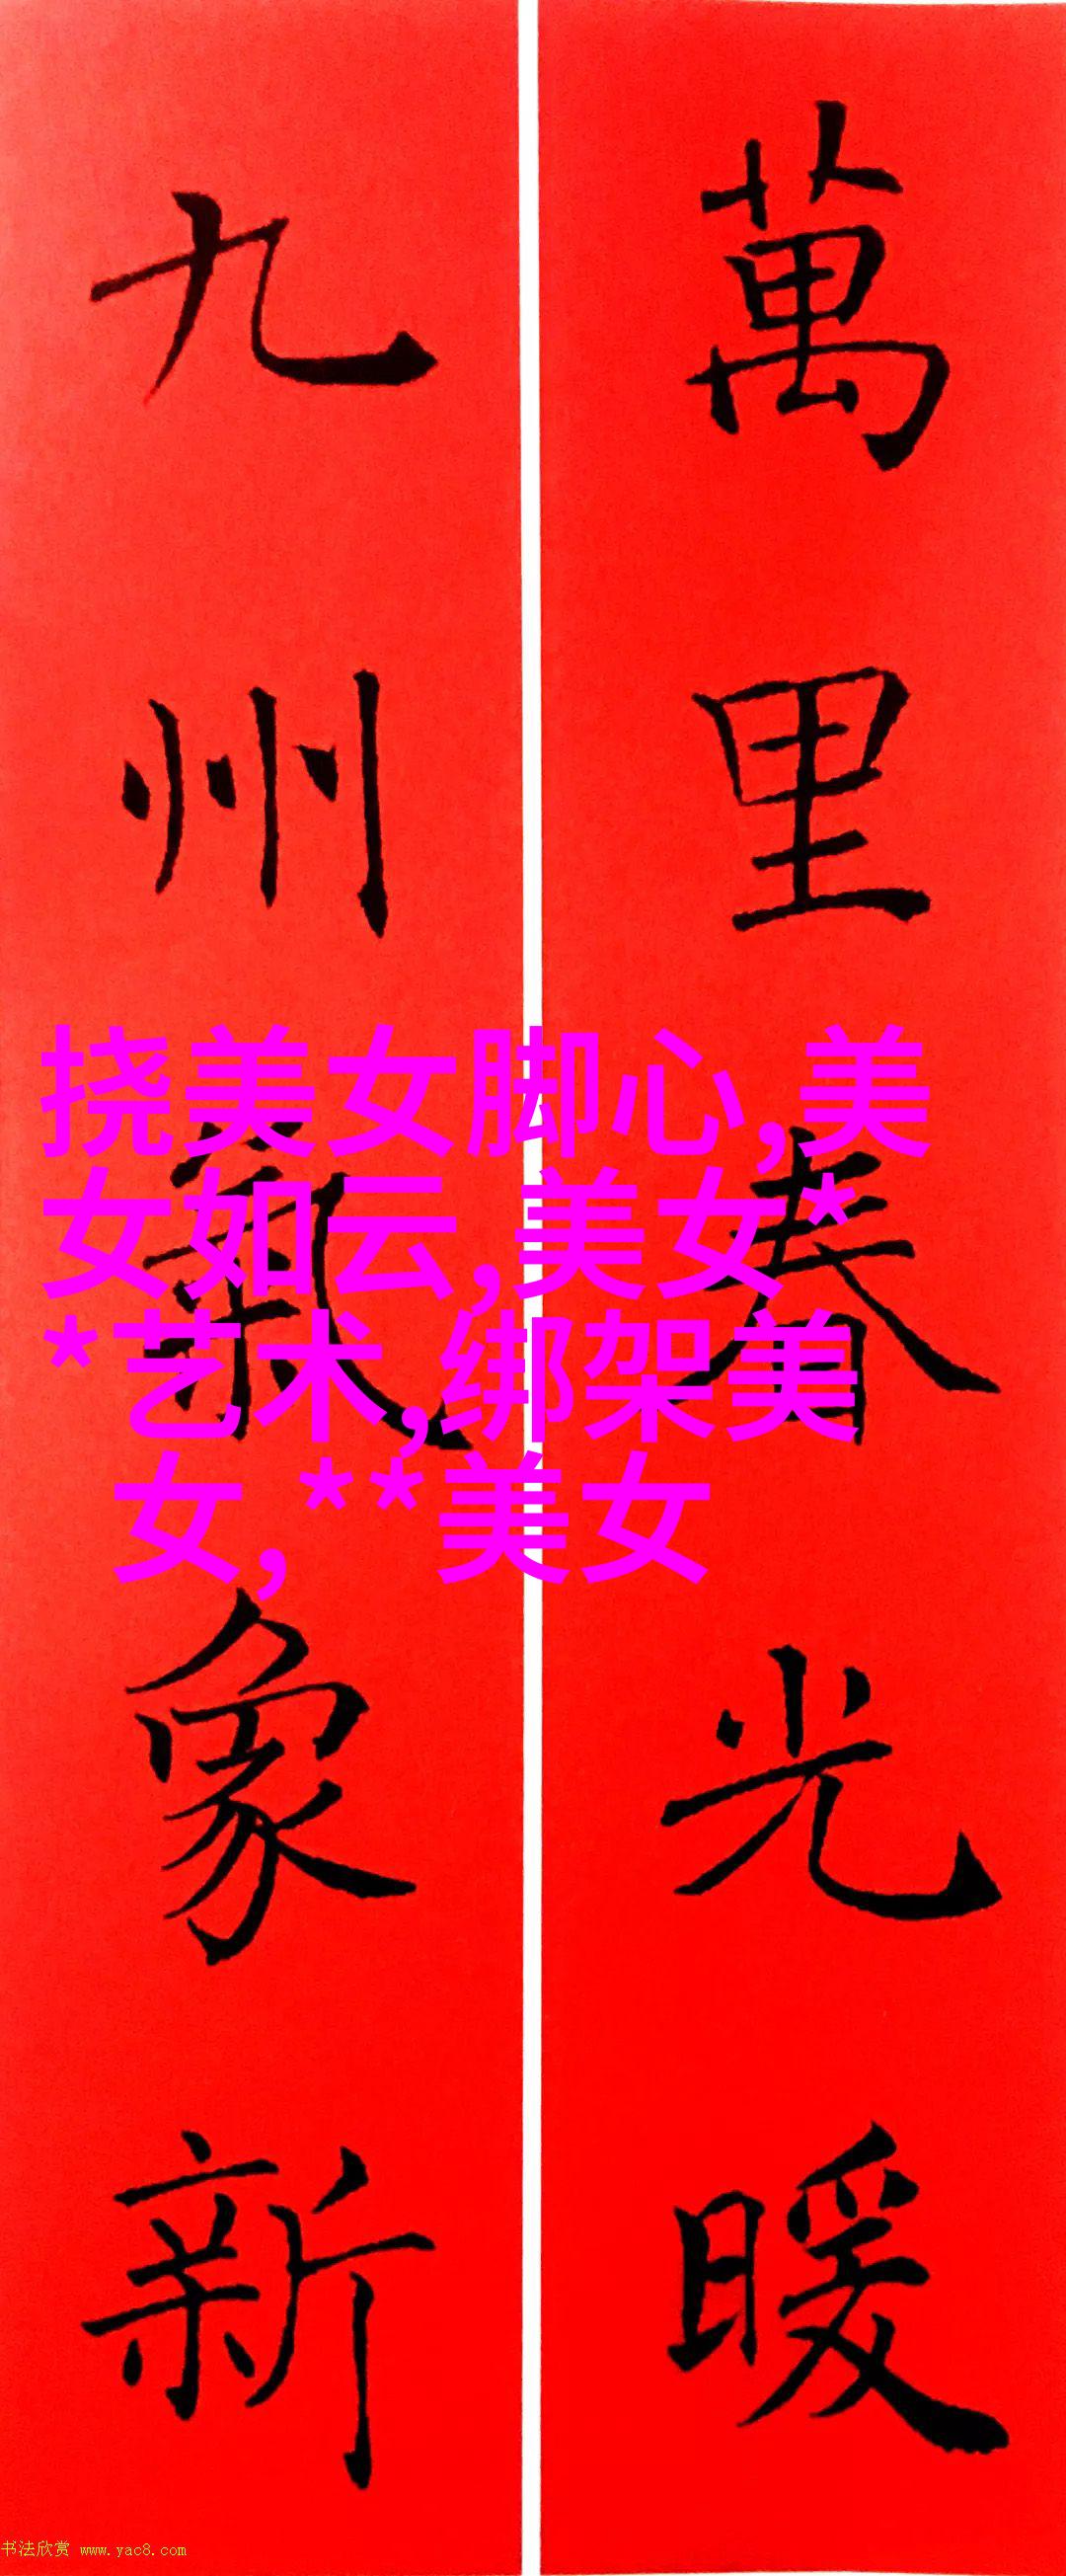 萬里春光暖
九州氣象新
挠美女脚心,美
女如云,美女*
*艺术,绑架美
女,**美女
书法欣赏 www.yac8.com